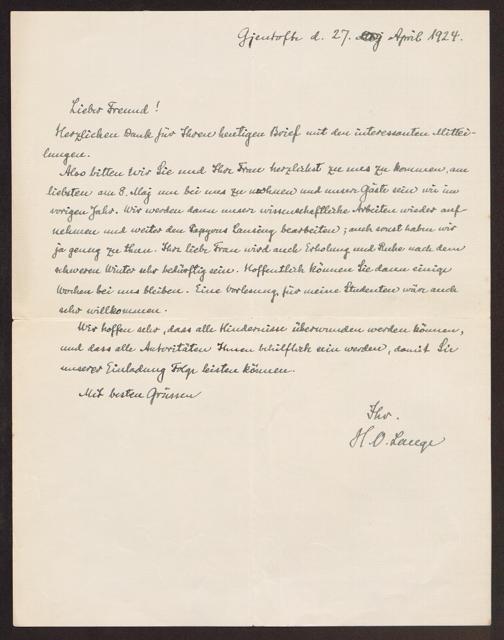 Gjentofte d. 27. April 1924.
Lieber Freund!
Herzlichen Dank für Ihren heutigen Brief mit den interessanten Mittei-
lungen.
Also bitten wir Sie und Ihre Frau herzlichst zu uns zu kommen, am
liebsten am 8. Maj um bei uns zu wohnen und unsere Gäste sein wie im
vorigen Jahr. Wir werden dann unser wissenschaftliche Arbeiten wieder auf-
nehmen und weiter den Papyrus Lansing bearbeiten; auch sonst haben wir
ja genug zu thun. Ihre liebe Frau wird auch Erholung und Ruhe nach dem
schweren Winter sehr bedürftig sein. Hoffentlich können Sie dann einige
Wochen bei uns bleiben. Eine Vorlesung für meine Studenten wäre auch
sehr willkommen.
Wir hoffen sehr, dass alle Hindernisse überwunden werden können,
und dass alle Autoritäten Ihnen behilflich sein werden, damit Sie
unserer Einladung Folge leisten können.
Mit besten Grüssen
Ihr.
H. O. Lange